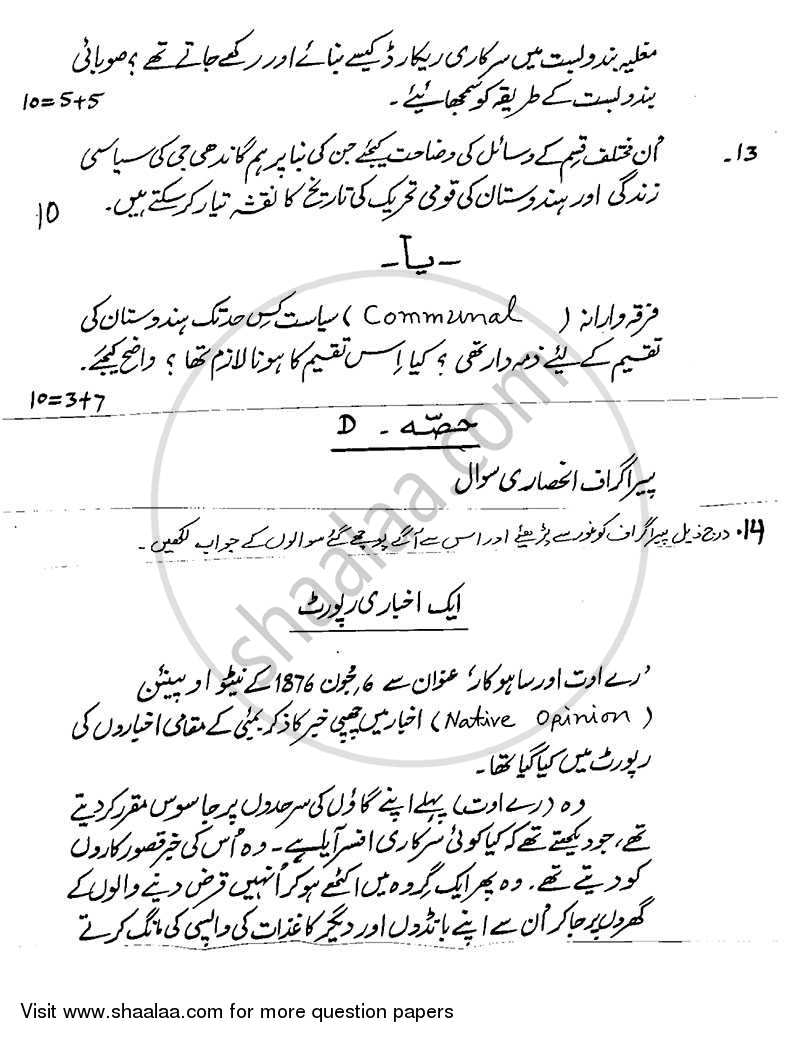 مغلیہ بندوبست میں سرکاری ریکارڈ کیسے بنائے اور رکھے جاتے تھے ؟ صوبائی
بندوبست کے طریقہ کو سمجھائیے ۔
10=5+5
13۔ اُن مختلف قسم کے وسائل کی وضاحت کیجئے جن کی بنا پر ہم گاندھی جی کی سیاسی
زندگی اور ہندوستان کی قومی تحریک کی تاریخ کا نقشہ تیار کرسکتے ہیں۔
10
- یا -
فرقہ وارانہ ( Communal ) سیاست کس حد تک ہندوستان کی
تقسیم کے لئے ذمہ دار تھی ؟ کیا اِس تقسیم کا ہونا لازم تھا ؟ واضح کیجئے۔
10=3+7
حصّہ - D
پیراگراف انحصاری سوال
14. درج ذیل پیراگراف کو غور سے پڑھئے اور اس سے آگے پوچھے گئے سوالوں کے جواب لکھیں ۔
ایک اخباری رپورٹ
'رے اوت اور ساہوکار' عنوان سے 6 جون 1876 کے نیٹو اوپینئن
(Native Opinion) اخبار میں چھپی خبر کا ذکر بمبئی کے مقامی اخباروں کی
رپورٹ میں کیا گیا تھا ۔
وہ (رے اوت) پہلے اپنے گاؤں کی سرحدوں پر جاسوس مقرر کر دیتے
تھے، جو دیکھتے تھے کہ کیا کوئی سرکاری افسر آیا ہے ۔ وہ اُس کی خبر قصورکاروں
کو دیتے تھے ۔ وہ پھر ایک گروہ میں اکٹھے ہو کر اُنہیں قرض دینے والوں کے
گھروں پر جاکر اُن سے اپنے بانڈوں اور دیگر کاغذات کی واپسی کی مانگ کرتے
shaalaa.com
Visit www.shaalaa.com for more question papers